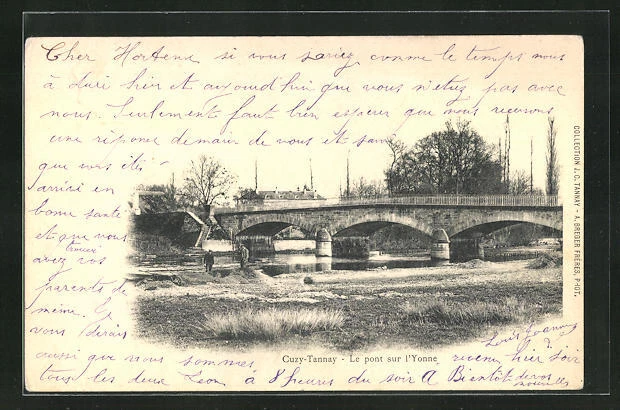 Cher Hortense si vous saviez comme le temps nous
à duré hier et aujourd'hui que vous n'etiez pas avec
nous. Seulement faut bien esperer que nous recevrons
une réponse demain de vous et
que vous
arrivé en
bonne santé
et que vous
avez trouvé vos
parents de
même. Je
vous dirais
aussi que nous sommes revenu hier soir
tous les deux Leon à 8 heures du soir A Bientôt de vos nouvelles
Louis Joanny
Cuzy-Tannay - Le pont sur l'Yonne
COLLECTION J. C. TANNAY - A. BREGER FRÈRES, PHOT.